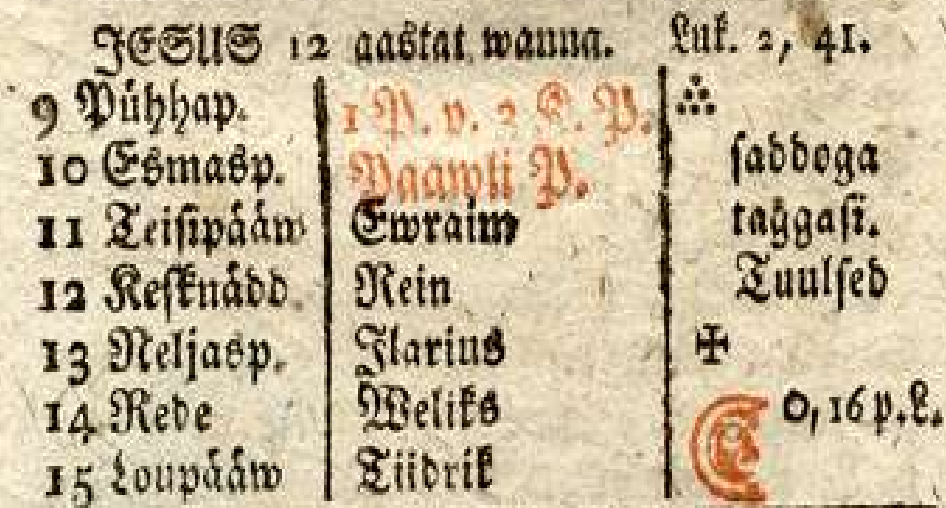 JESUS 12 aastat wanna. Luk. 2, 41.
9 Pühhap. 1 P. p. 3 K. P.
10 Esmasp. Paawli P. saddoga
11 Teisipääw Ewraim taggasi.
12 Kesknädd Rein Tuulsed
13 Neljasp. Ilarius ✠
14 Rede Weliks 0, 16 p. L.
15 Loupääw Tiidrik